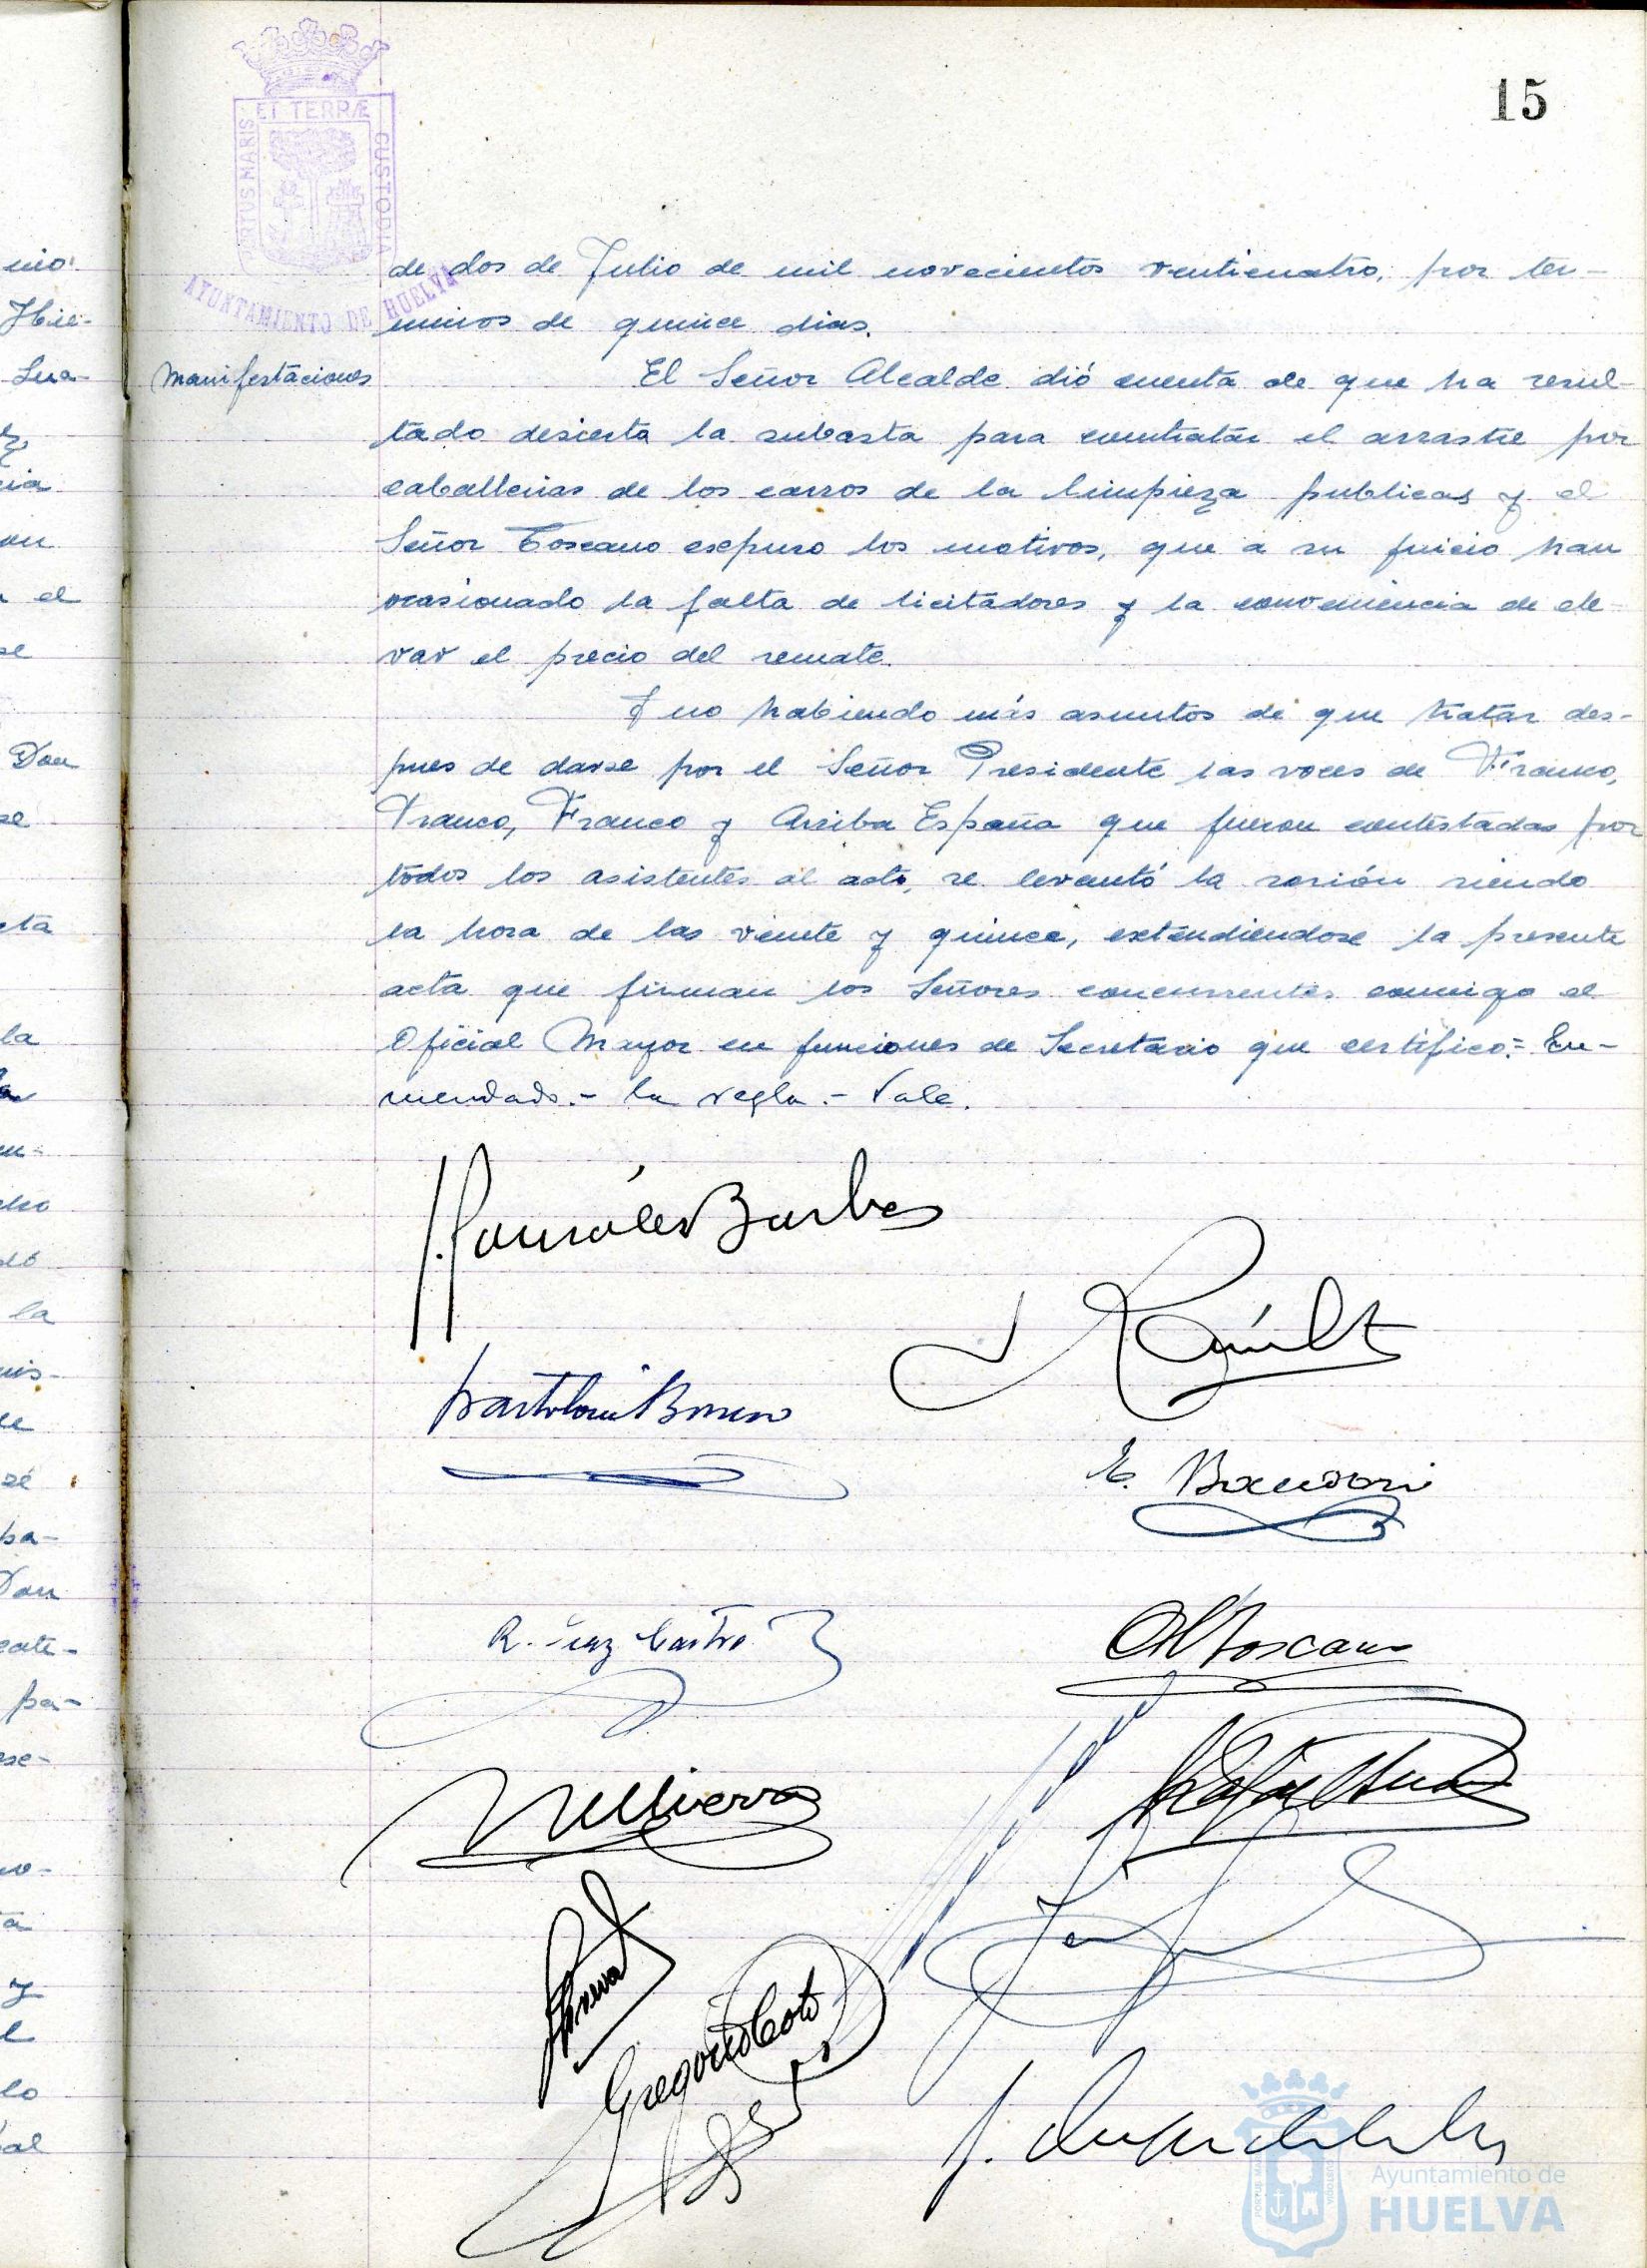 15
ET TERRÆ
CUSTODIA
AYUNTAMIENTO DE HUELVA
de dos de Julio de mil novecientos venticuatro, por tér-
minos de quince dias.
Manifestaciones
El Señor Alcalde dió cuenta de que ha resul-
tado desierta la subasta para contratar el arrastre por
caballerias de los carros de la limpieza publicas y el
Señor Toscano expuso los motivos, que a su juicio han
ocasionado la falta de licitadores y la conveniencia de ele-
var el precio del remate.
Y no habiendo más asuntos de que tratar des-
pues de darse por el Señor Presidente las voces de Franco,
Franco, Franco y Arriba España que fueron contestadas por
todos los asistentes al acto, se levantó la sesión siendo
la hora de las veinte y quince, extendiendose la presente
acta que firman los Señores concurrentes conmigo el
Oficial Mayor en funciones de Secretario que certifico.= En-
mendado.- la regla.- Vale.
González Barba
R. Diaz Castro
Toscano
Gregorio Coto
Ayuntamiento de
HUELVA
mo
Hie-
Sua-
cia
on
el
se
Don
se
cta
la
cho
dó
la
mis-
ze
ba-
Don
cate-
pa-
ese-
y
lo
al